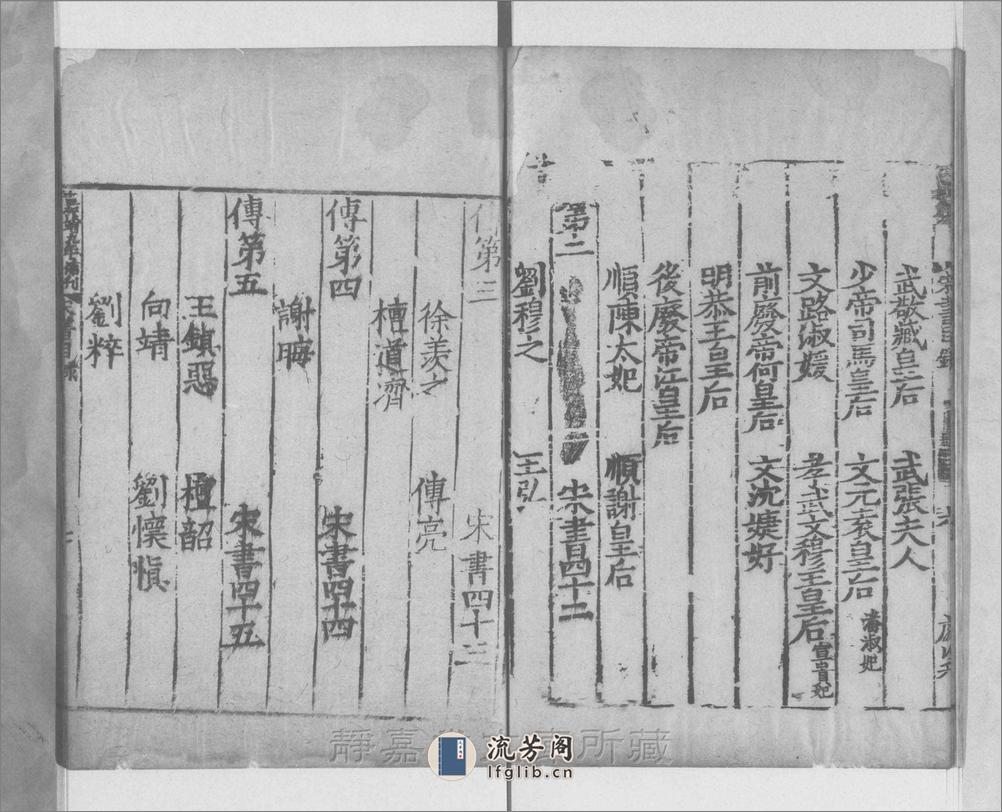 武敬臧皇后　武張夫人
少帝司馬皇后　文元袁皇后　潘淑妃
文路淑媛　孝武文穆王皇后　宣貴妃
前廢帝何皇后　文沈婕妤
明恭王皇后
後廢帝江皇后
順陳太妃　順謝皇后
第二　宋書四十二
劉穆之　王弘
傳第三　宋書四十三
徐羨之　傅亮
檀道濟
傳第四　宋書四十四
謝晦
傳第五　宋書四十五
王鎮惡　檀韶
向靖　劉懷慎
劉粹
靜嘉
所藏
流芳阁
lfglib.cn